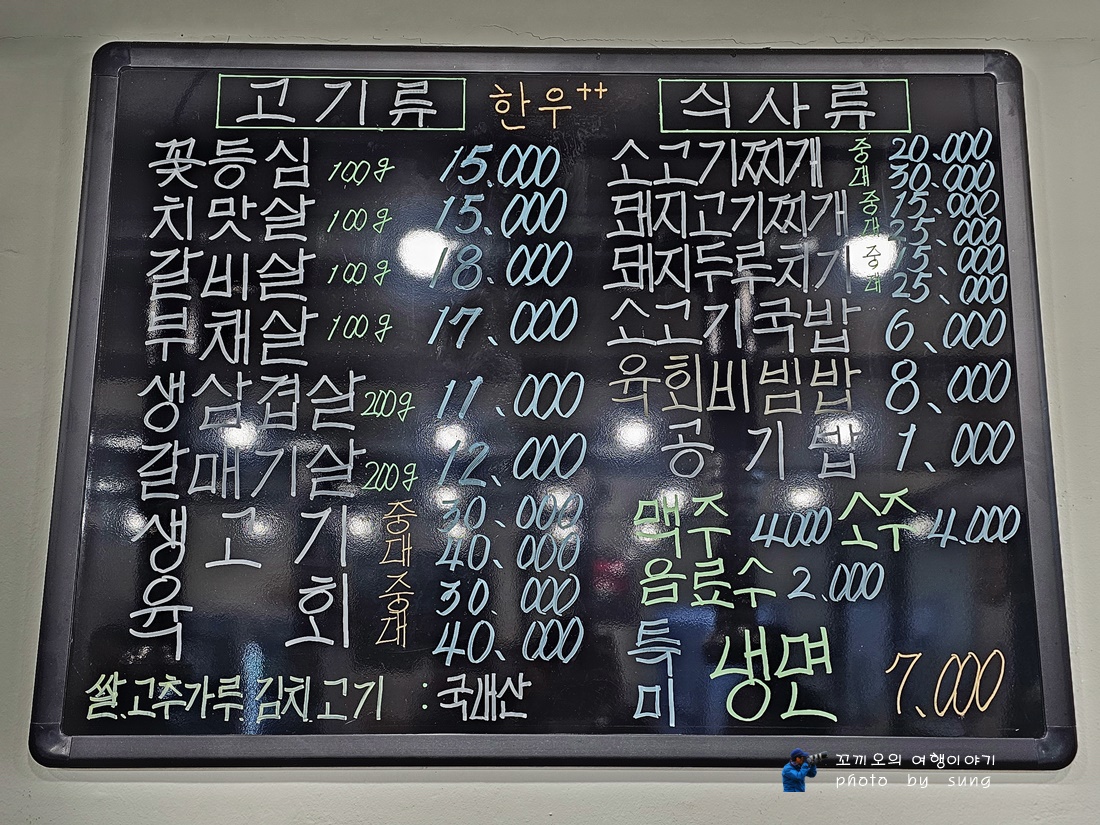 고기류 한우++
꽃등심 100g 15.000
치맛살 100g 15.000
갈비살 100g 18.000
부채살 100g 17.000
생삼겹살 200g 11.000
갈매기살 200g 12.000
생고기 중 30.000
대 40.000
육회 중 30.000
대 40.000
쌀.고추가루.김치.고기 : 국내산
식사류
소고기찌개 중 20.000
대 30.000
돼지고기찌개 중 15.000
대 25.000
돼지두루치기 중 15.000
대 25.000
소고기국밥 6.000
육회비빔밥 8.000
공기밥 1.000
맥주 4.000 소주 4.000
음료수 2.000
특미 냉면 7.000
꼬끼오의 여행이야기
photo by sung